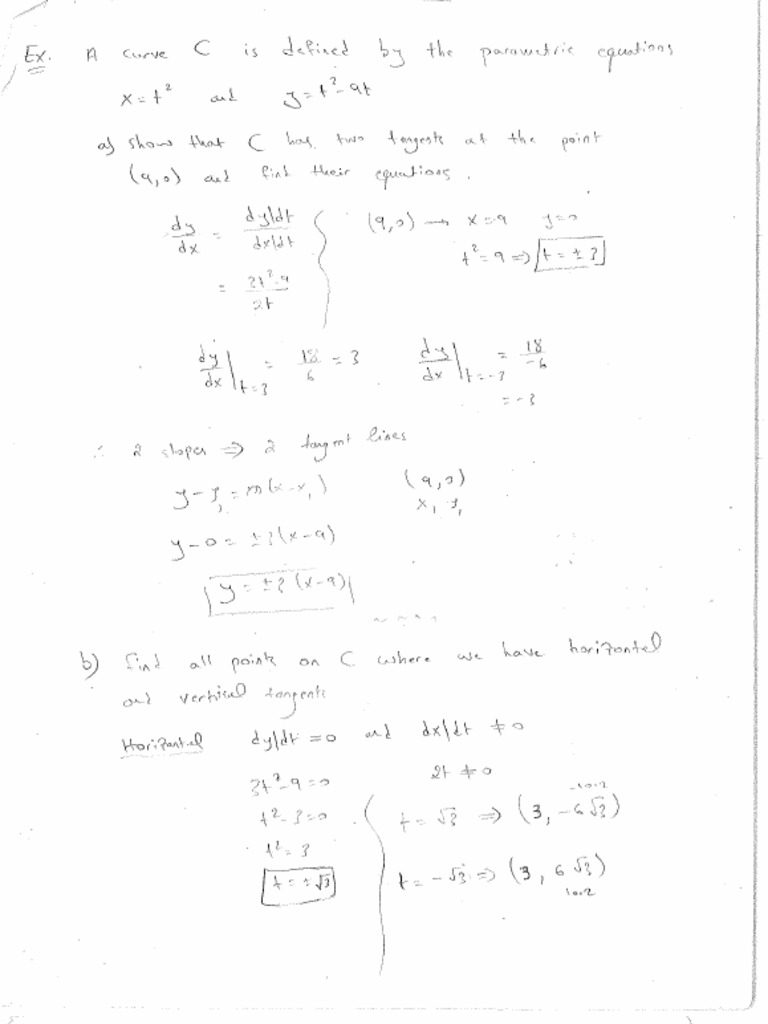 Ex. A curve C is defined by the parametric equations
x = t² and y = t³ - 9t
a) show that C has two tangents at the point
(9,0) and find their equations.
dy/dx = (dy/dt)/(dx/dt)
= (3t² - 9)/2t
(9,0) → x = 9 y = 0
t² = 9 ⇒ t = ± 3
dy/dx |t=3 = 18/6 = 3 dy/dx |t=-3 = 18/-6
= -3
∴ 2 slopes ⇒ 2 tangent lines
y - y₁ = m(x - x₁) (9,0)
x₁ y₁
y - 0 = ±3(x - 9)
y = ±3(x - 9)
b) find all points on C where we have horizontel
and vertical tangents
Horizontel dy/dt = 0 and dx/dt ≠ 0
3t² - 9 = 0 2t ≠ 0
t² - 3 = 0
t² = 3
t = ±√3
-10.2
t = √3 ⇒ (3, -6√3)
t = -√3 ⇒ (3, 6√3)
10.2